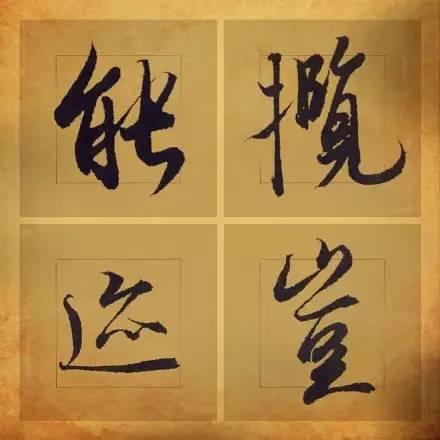 攬豈
能迹